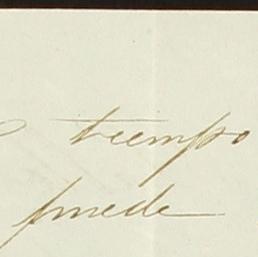 tiempo
puede